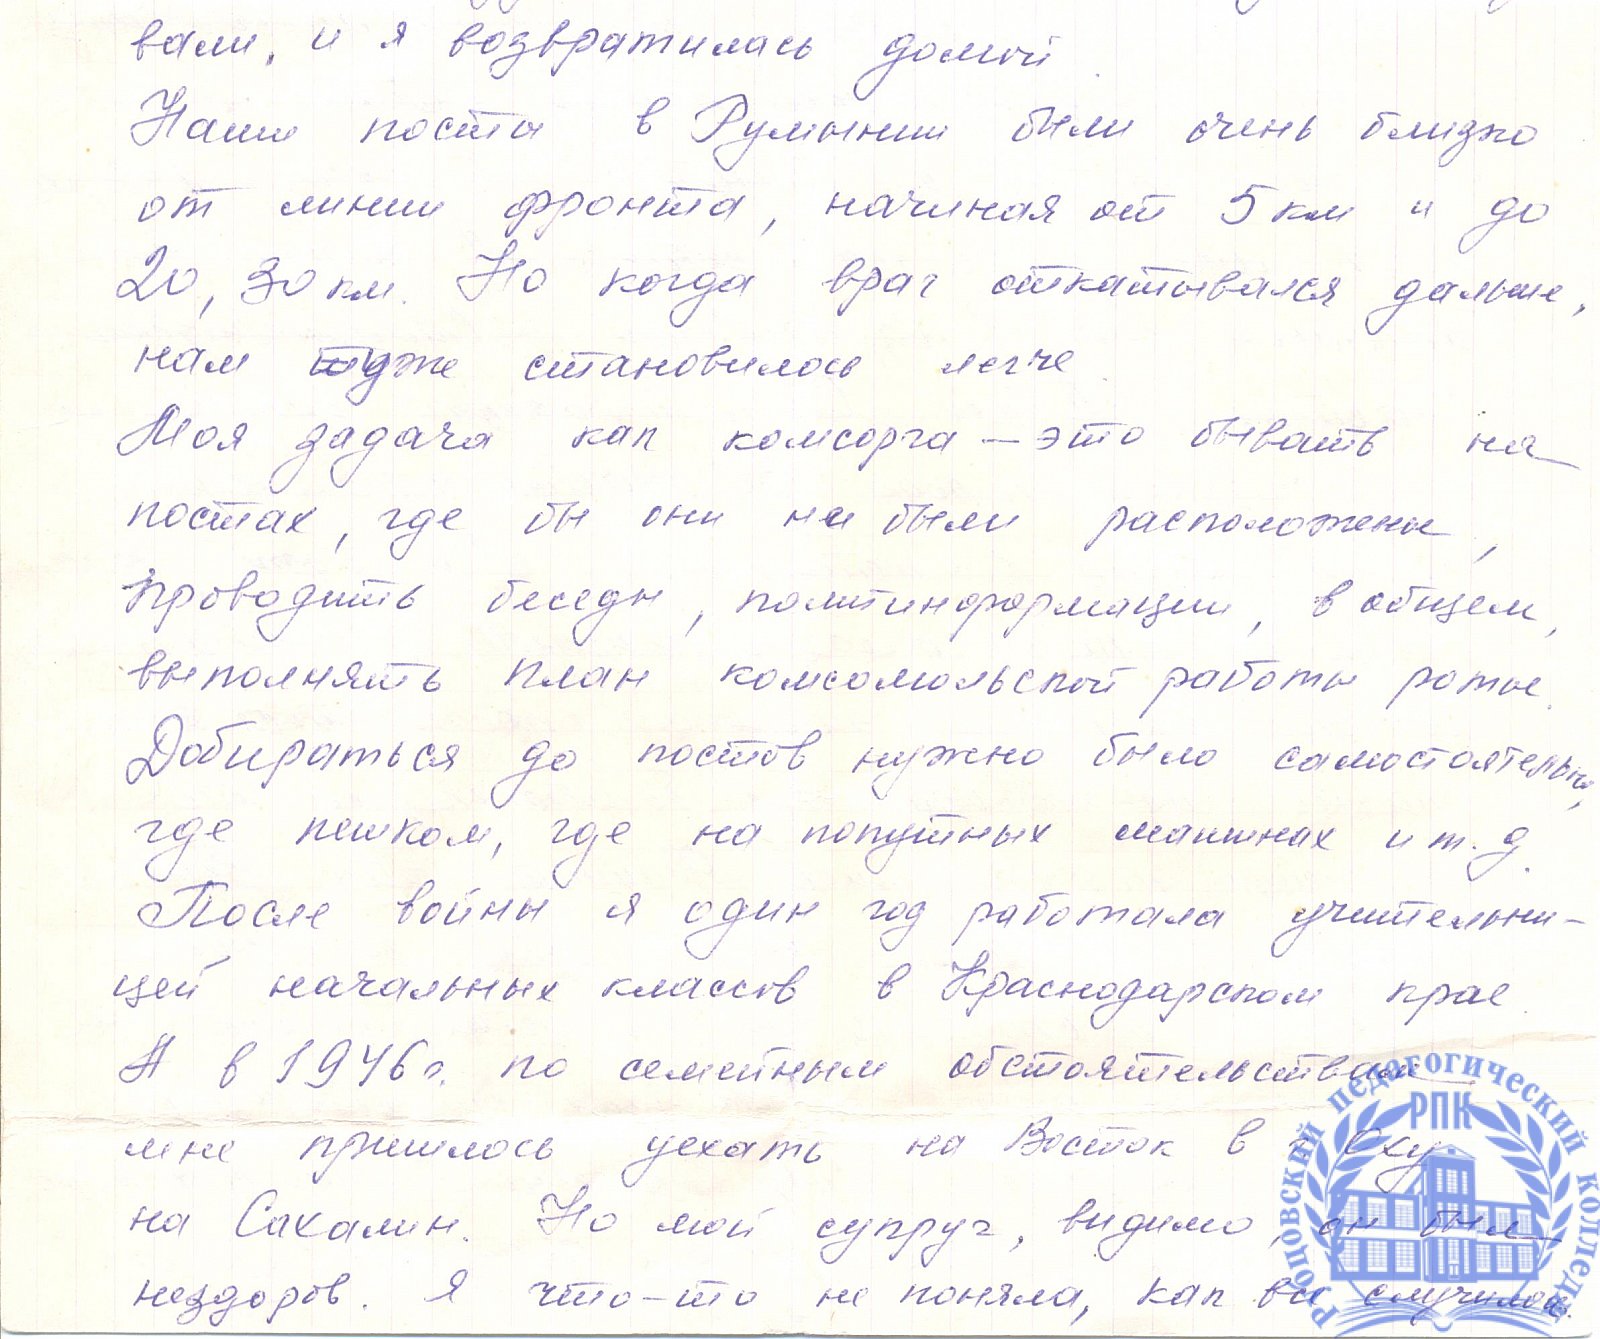 вали, и я возвратилась домой.
Наши посты в Румынии были очень близко
от линии фронта, начиная от 5 км и до
20, 30 км. Но когда враг откатывался дальше,
нам уже становилось легче.
Моя задача как комсорга — это бывать на
постах, где бы они ни были расположены,
проводить беседы, политинформации, в общем,
выполнять план комсомольской работы роты.
Добираться до постов нужно было самостоятельно,
где пешком, где на попутных машинах и т. д.
После войны я один год работала учительни-
цей начальных классов в Краснодарском крае.
А в 1946 г. по семейным обстоятельствам
мне пришлось уехать на Восток в г. Оху
на Сахалин. Но мой супруг, видимо, он был
нездоров. Я что-то не поняла, как всё случилось.
Руполовский педагогический колледж
РПК